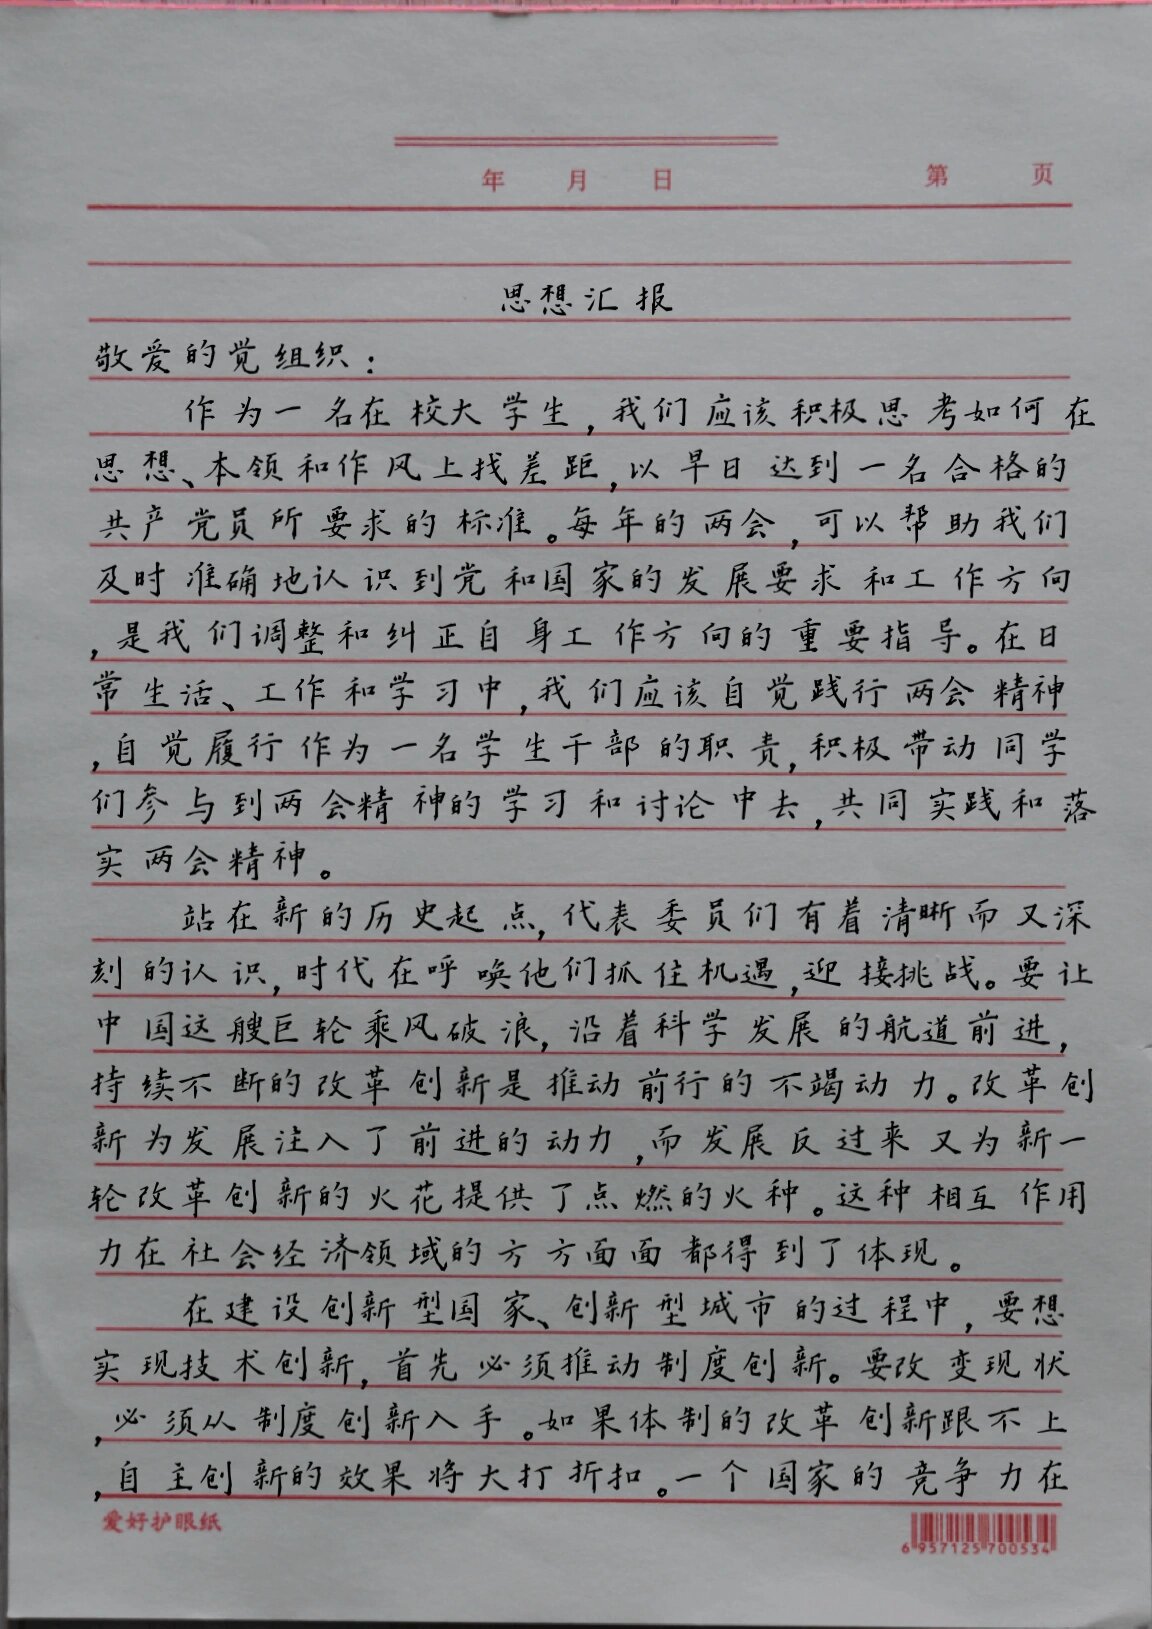 年 月 日 第 页
思想汇报
敬爱的党组织：
作为一名在校大学生，我们应该积极思考如何在
思想、本领和作风上找差距，以早日达到一名合格的
共产党员所要求的标准。每年的两会，可以帮助我们
及时准确地认识到党和国家的发展要求和工作方向
，是我们调整和纠正自身工作方向的重要指导。在日
常生活、工作和学习中，我们应该自觉践行两会精神
，自觉履行作为一名学生干部的职责，积极带动同学
们参与到两会精神的学习和讨论中去，共同实践和落
实两会精神。
站在新的历史起点，代表委员们有着清晰而又深
刻的认识，时代在呼唤他们抓住机遇，迎接挑战。要让
中国这艘巨轮乘风破浪，沿着科学发展的航道前进，
持续不断的改革创新是推动前行的不竭动力。改革创
新为发展注入了前进的动力，而发展反过来又为新一
轮改革创新的火花提供了点燃的火种。这种相互作用
力在社会经济领域的方方面面都得到了体现。
在建设创新型国家、创新型城市的过程中，要想
实现技术创新，首先必须推动制度创新。要改变现状
，必须从制度创新入手。如果体制的改革创新跟不上
，自主创新的效果将大打折扣。一个国家的竞争力在
爱好护眼纸
6 957125 700534